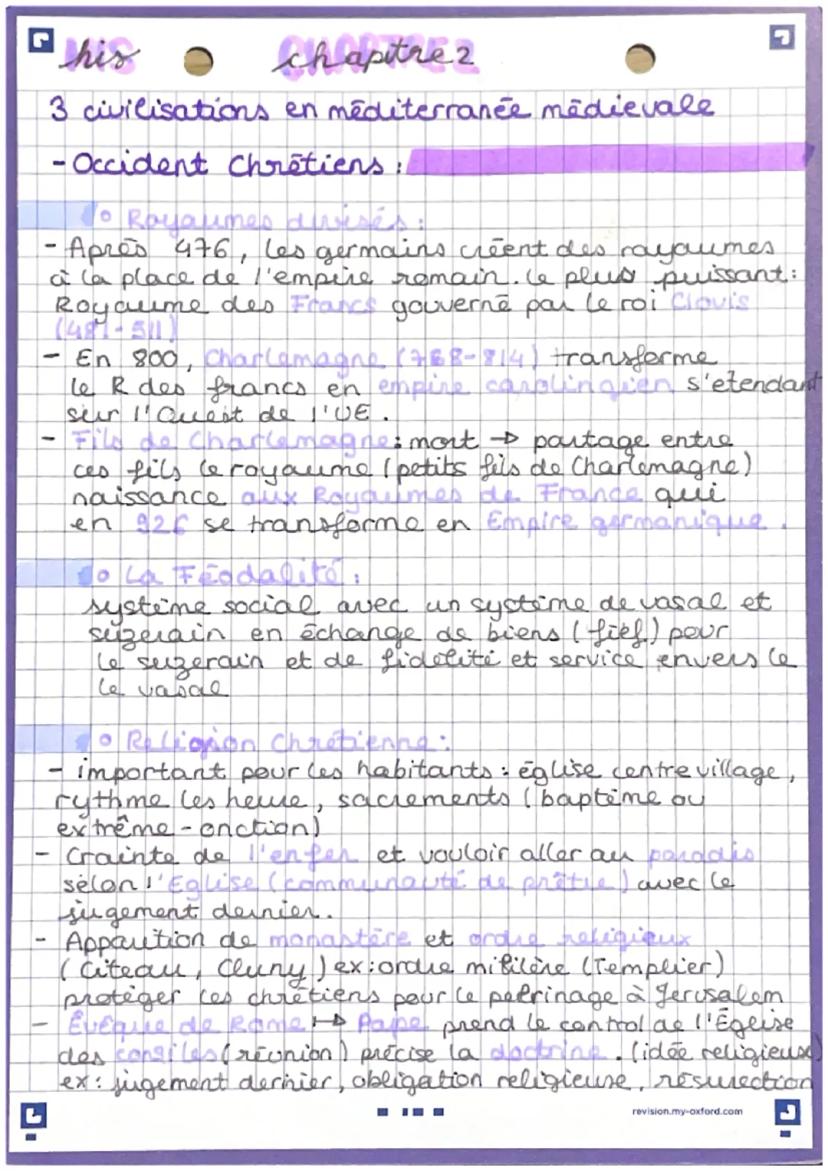 his chapitre 2
3 civilisations en méditerranée médievale
- Occident Chrétiens :
• Royaumes divisés :
- Après 476, les germains créent des rayaumes
à la place de l'empire romain. le plus puissant :
Royaume des Francs gouverné par le roi Clovis
(481-511)
- En 800, Charlemagne (768-814) transforme
le R des francs en empire carolingien s'etendant
sur l'Ouest de l'UE.
- Fils de Charlemagne : mort → partage entre
ces fils le royaume (petits fils de Charlemagne)
naissance aux Royaumes de France qui
en 926 se transforme en Empire germanique.
• La Féodalité :
système social avec un système de vasal et
suzerain en échange de biens (fief) pour
le suzerain et de fidélité et service envers le
le vasal
• Religion Chrétienne :
- important pour les habitants : église centre village,
rythme les heure, sacrements (baptême ou
extrême-onction)
- Crainte de l'enfer et vouloir aller au paradis
selon l'Eglise (communauté de prêtre) avec le
jugement dernier.
- Apparition de monastère et ordre religieux
(Citeau, Cluny) ex : ordre militère (Templier)
protéger les chrétiens pour le pelrinage à Jerusalem
- Évêque de Rome → Pape prend le control de l'Église
des consiles (réunion) précise la doctrine. (idée religieuse)
ex : jugement dernier, obligation religieuse, résurection
revision.my-oxford.com